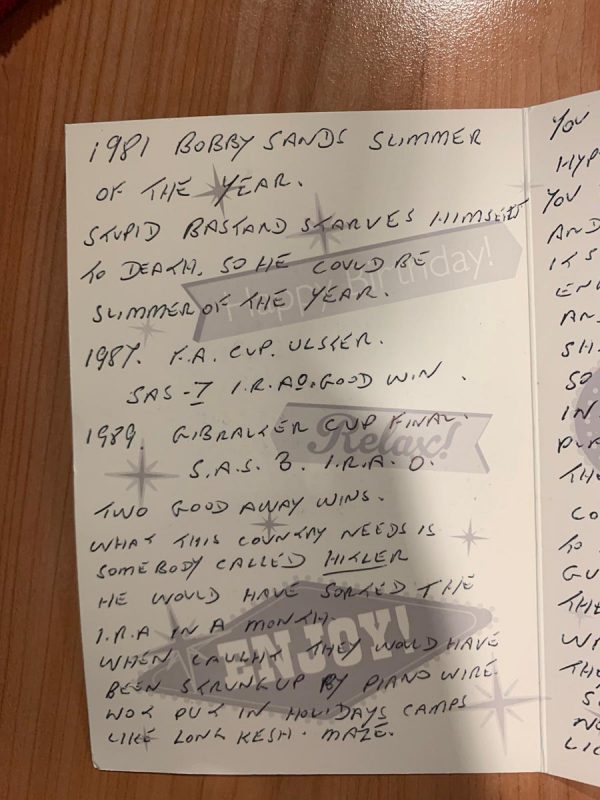 1981 BOBBY SANDS SLIMMER
OF THE YEAR.
STUPID BASTARD STARVES HIMSELF
TO DEATH. SO HE COULD BE
SLIMMER OF THE YEAR.
Happy Birthday!
1987. F.A. CUP. ULSTER.
SAS - 7 I.R.A 0. GOOD WIN.
1989. GIBRALTER CUP FINAL.
Relax!
S.A.S. 3. I.R.A. 0.
TWO GOOD AWAY WINS.
WHAT THIS COUNTRY NEEDS IS
SOMEBODY CALLED HITLER
HE WOULD HAVE SORTED THE
I.R.A IN A MONTH.
ENJOY!
WHEN CAUGHT THEY WOULD HAVE
BEEN STRUNG UP BY PIANO WIRE
NOT PUT IN HOLIDAYS CAMPS
LIKE LONG KESH. MAZE.
YOU
YOU
AND
SO
IN
TO